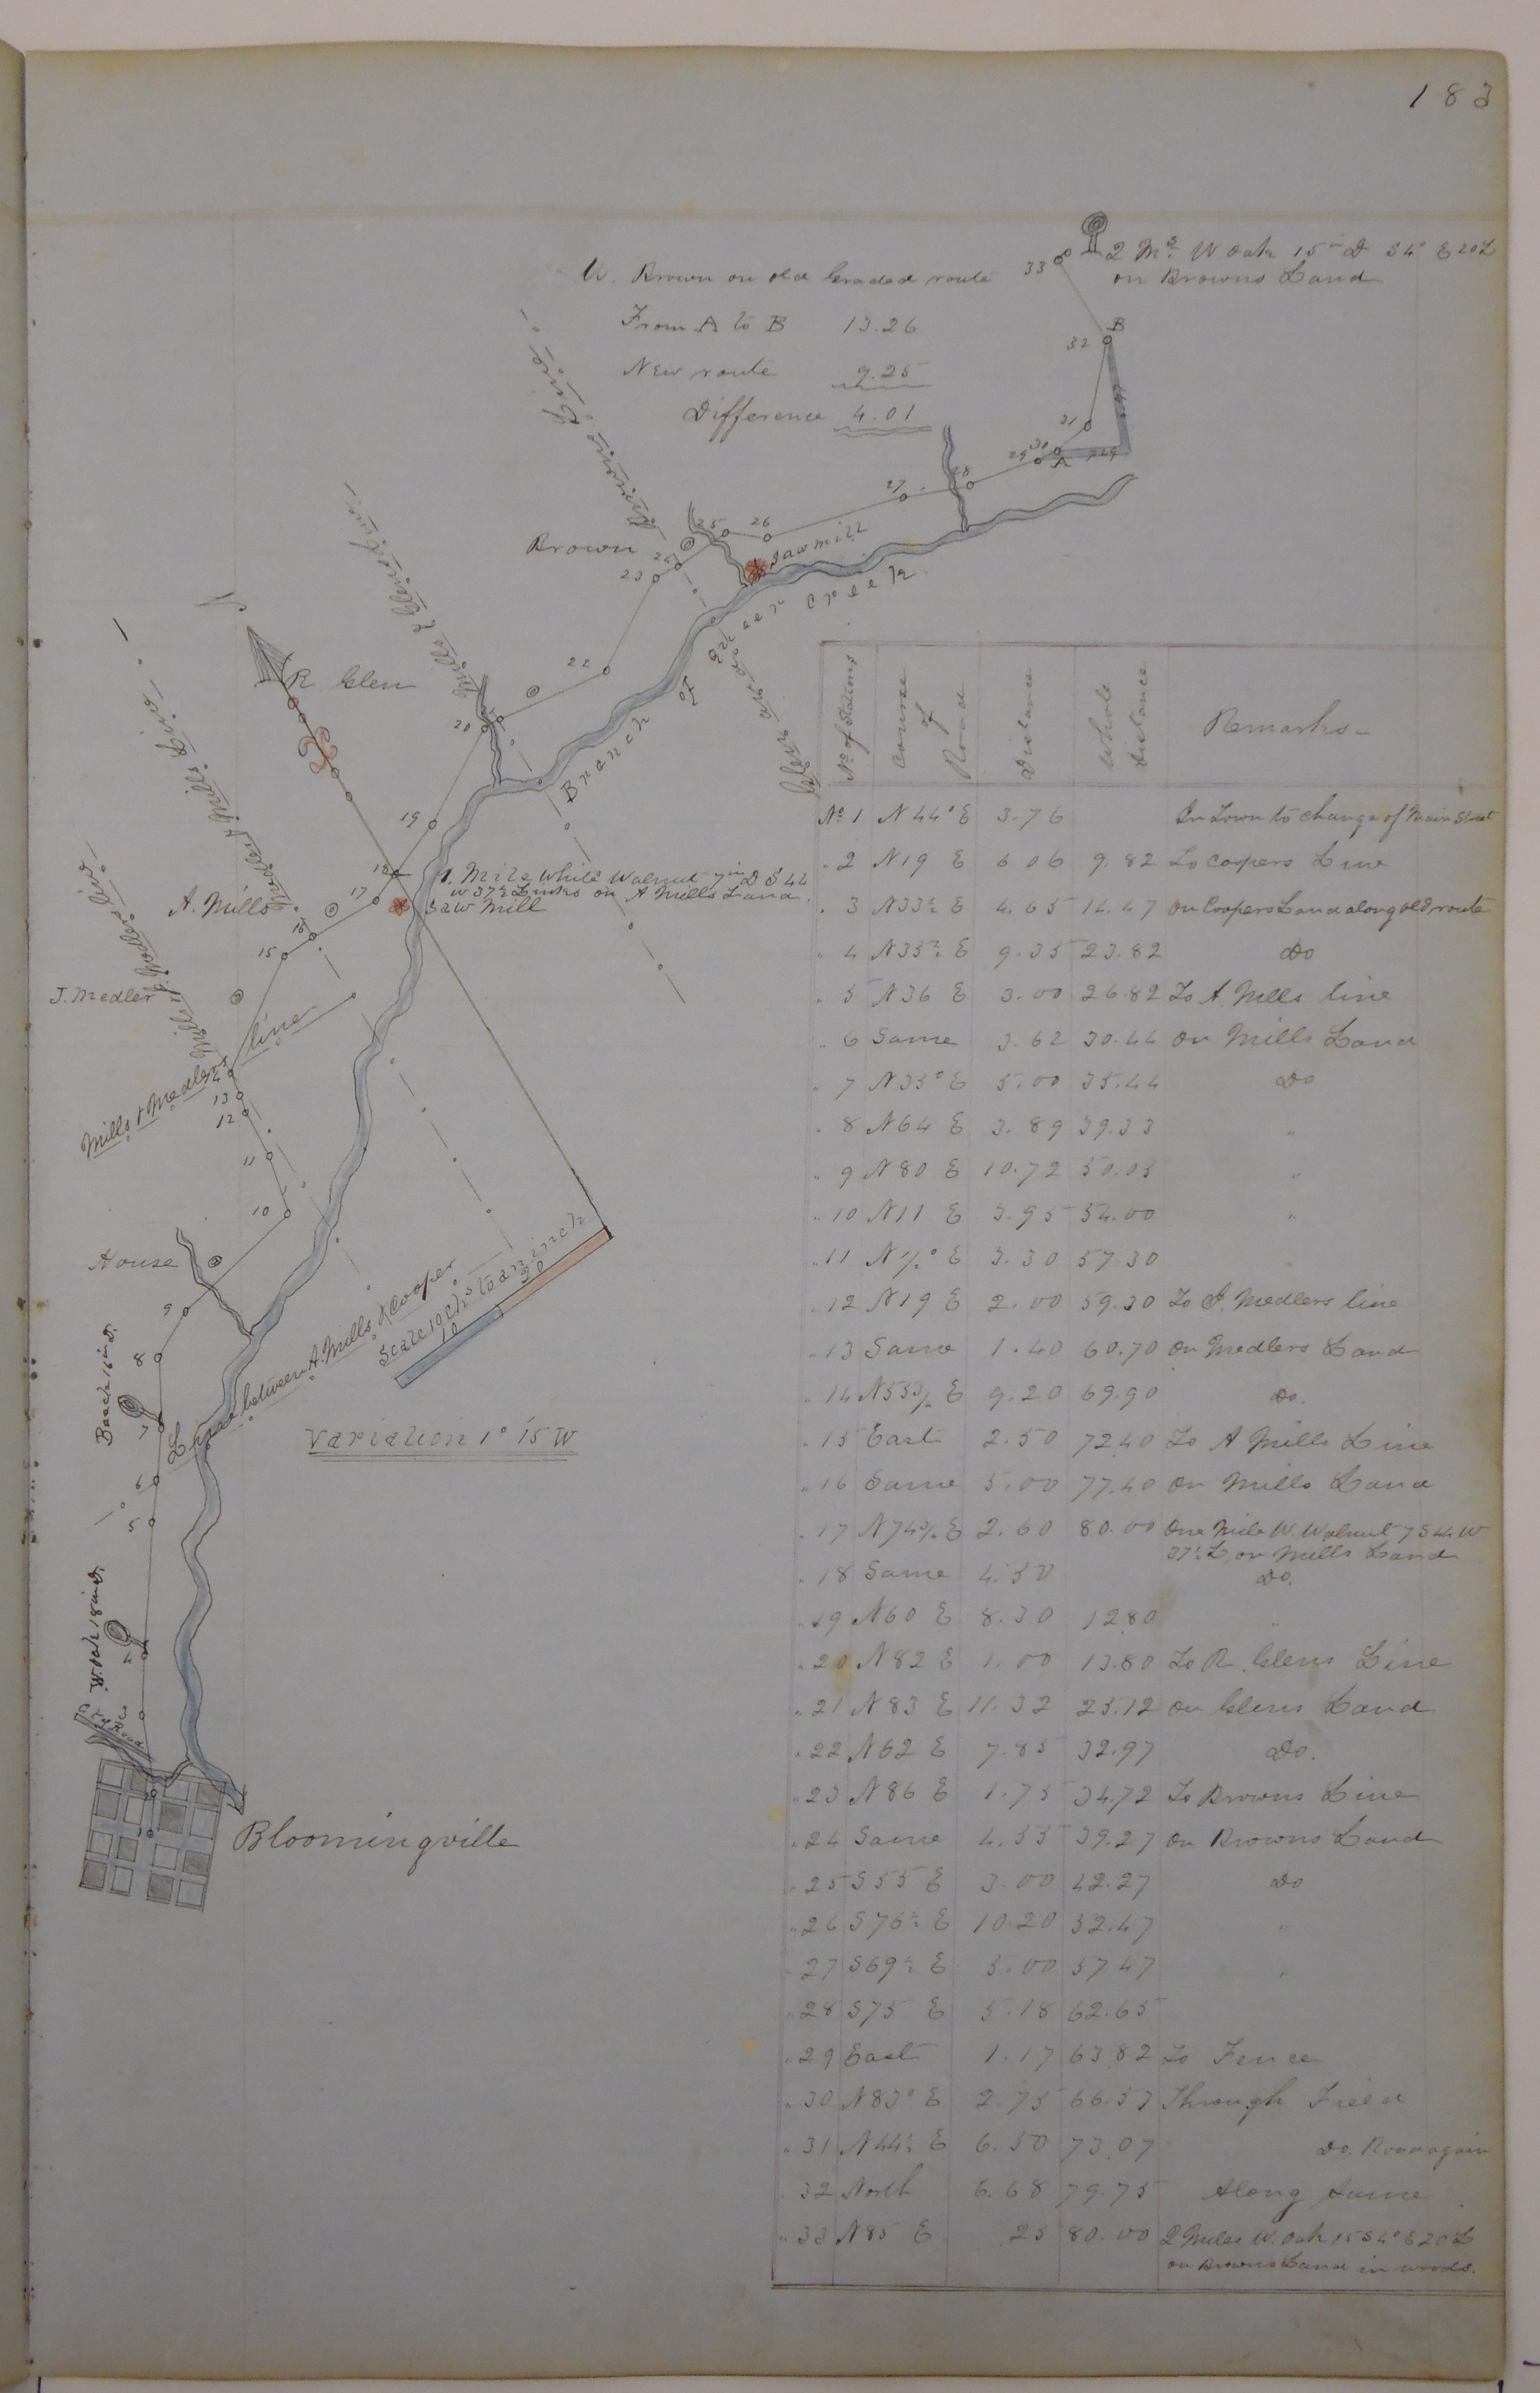 183
2 Ms W Oak 15 in D S4° E 20 L
on Browns Land
33
W. Brown on old Graded route
From A to B 13.26
New route 9.25
Difference 4.01
B
32
31
30
29
A
28
27
26
25
Browns Line
Brown
24
23
Sawmill
Branch of Queer Creek
22
Mills & Glens Line
R Glen
20
Glens and Browns
19
18
1. Mile White Walnut 7 in D S 44
W 37½ Links on A Mills Land.
Saw Mill
17
A. Mills
16
15
Medlers & Mills Line
J. Medler
Mills & Medlers Line
Mills & Medlers line
14
13
12
11
10
House
9
8
Beech 16 in D.
7
6
5
Line between A. Mills & Cooper
Scale 10 Chs to an inch
10
20
Variation 1° 15 W
W. Oak 18 in D.
4
Road
Bloomingville
No of Stations | Course of Road | Distance | Whole Distance | Remarks
No 1 N 44° E 3.76 In Town to change of Main Street
" 2 N19 E 6 06 9.82 To Coopers Line
" 3 N33½ E 4.65 14.47 On Coopers Land along old route
" 4 N35½ E 9.35 23.82 Do
" 5 N36 E 3.00 26.82 To A. Mills line
" 6 Same 3.62 30.44 On Mills Land
" 7 N35° E 5.00 35.44 Do
" 8 N64 E 3.89 39.33 "
" 9 N80 E 10.72 50.05 "
" 10 N11 E 3.95 54.00 "
" 11 N½° E 3.30 57.30
" 12 N19 E 2.00 59.30 To J. Medlers line
" 13 Same 1.40 60.70 On Medlers Land
" 14 N55½ E 9.20 69.90 Do.
" 15 East 2.50 72.40 To A Mills Line
" 16 Same 5.00 77.40 On Mills Land
" 17 N74½ E 2.60 80.00 One Mile W. Walnut 7 S 44 W
37½ L, on Mills Land
" 18 Same 4.50 Do.
" 19 N60 E 8.30 12.80 "
" 20 N82 E 1.00 13.80 To R. Glens Line
" 21 N83 E 11.32 25.12 On Glens Land
" 22 N62 E 7.85 32.97 Do.
" 23 N86 E 1.75 34.72 To Browns Line
" 24 Same 4.55 39.27 On Browns Land
" 25 S55 E 3.00 42.27 Do
" 26 S76½ E 10.20 52.47 "
" 27 S69½ E 5.00 57 47 "
" 28 S75 E 5.18 62.65
" 29 East 1.17 63.82 To Fence
" 30 N83° E 2.75 66.57 Through Field
" 31 N44½ E 6.50 73.07 Do. Road again
" 32 North 6.68 79.75 Along Same
" 33 N85 E .25 80.00 2 Miles W. Oak 15 S4° E 20 L
on Browns Land in woods.